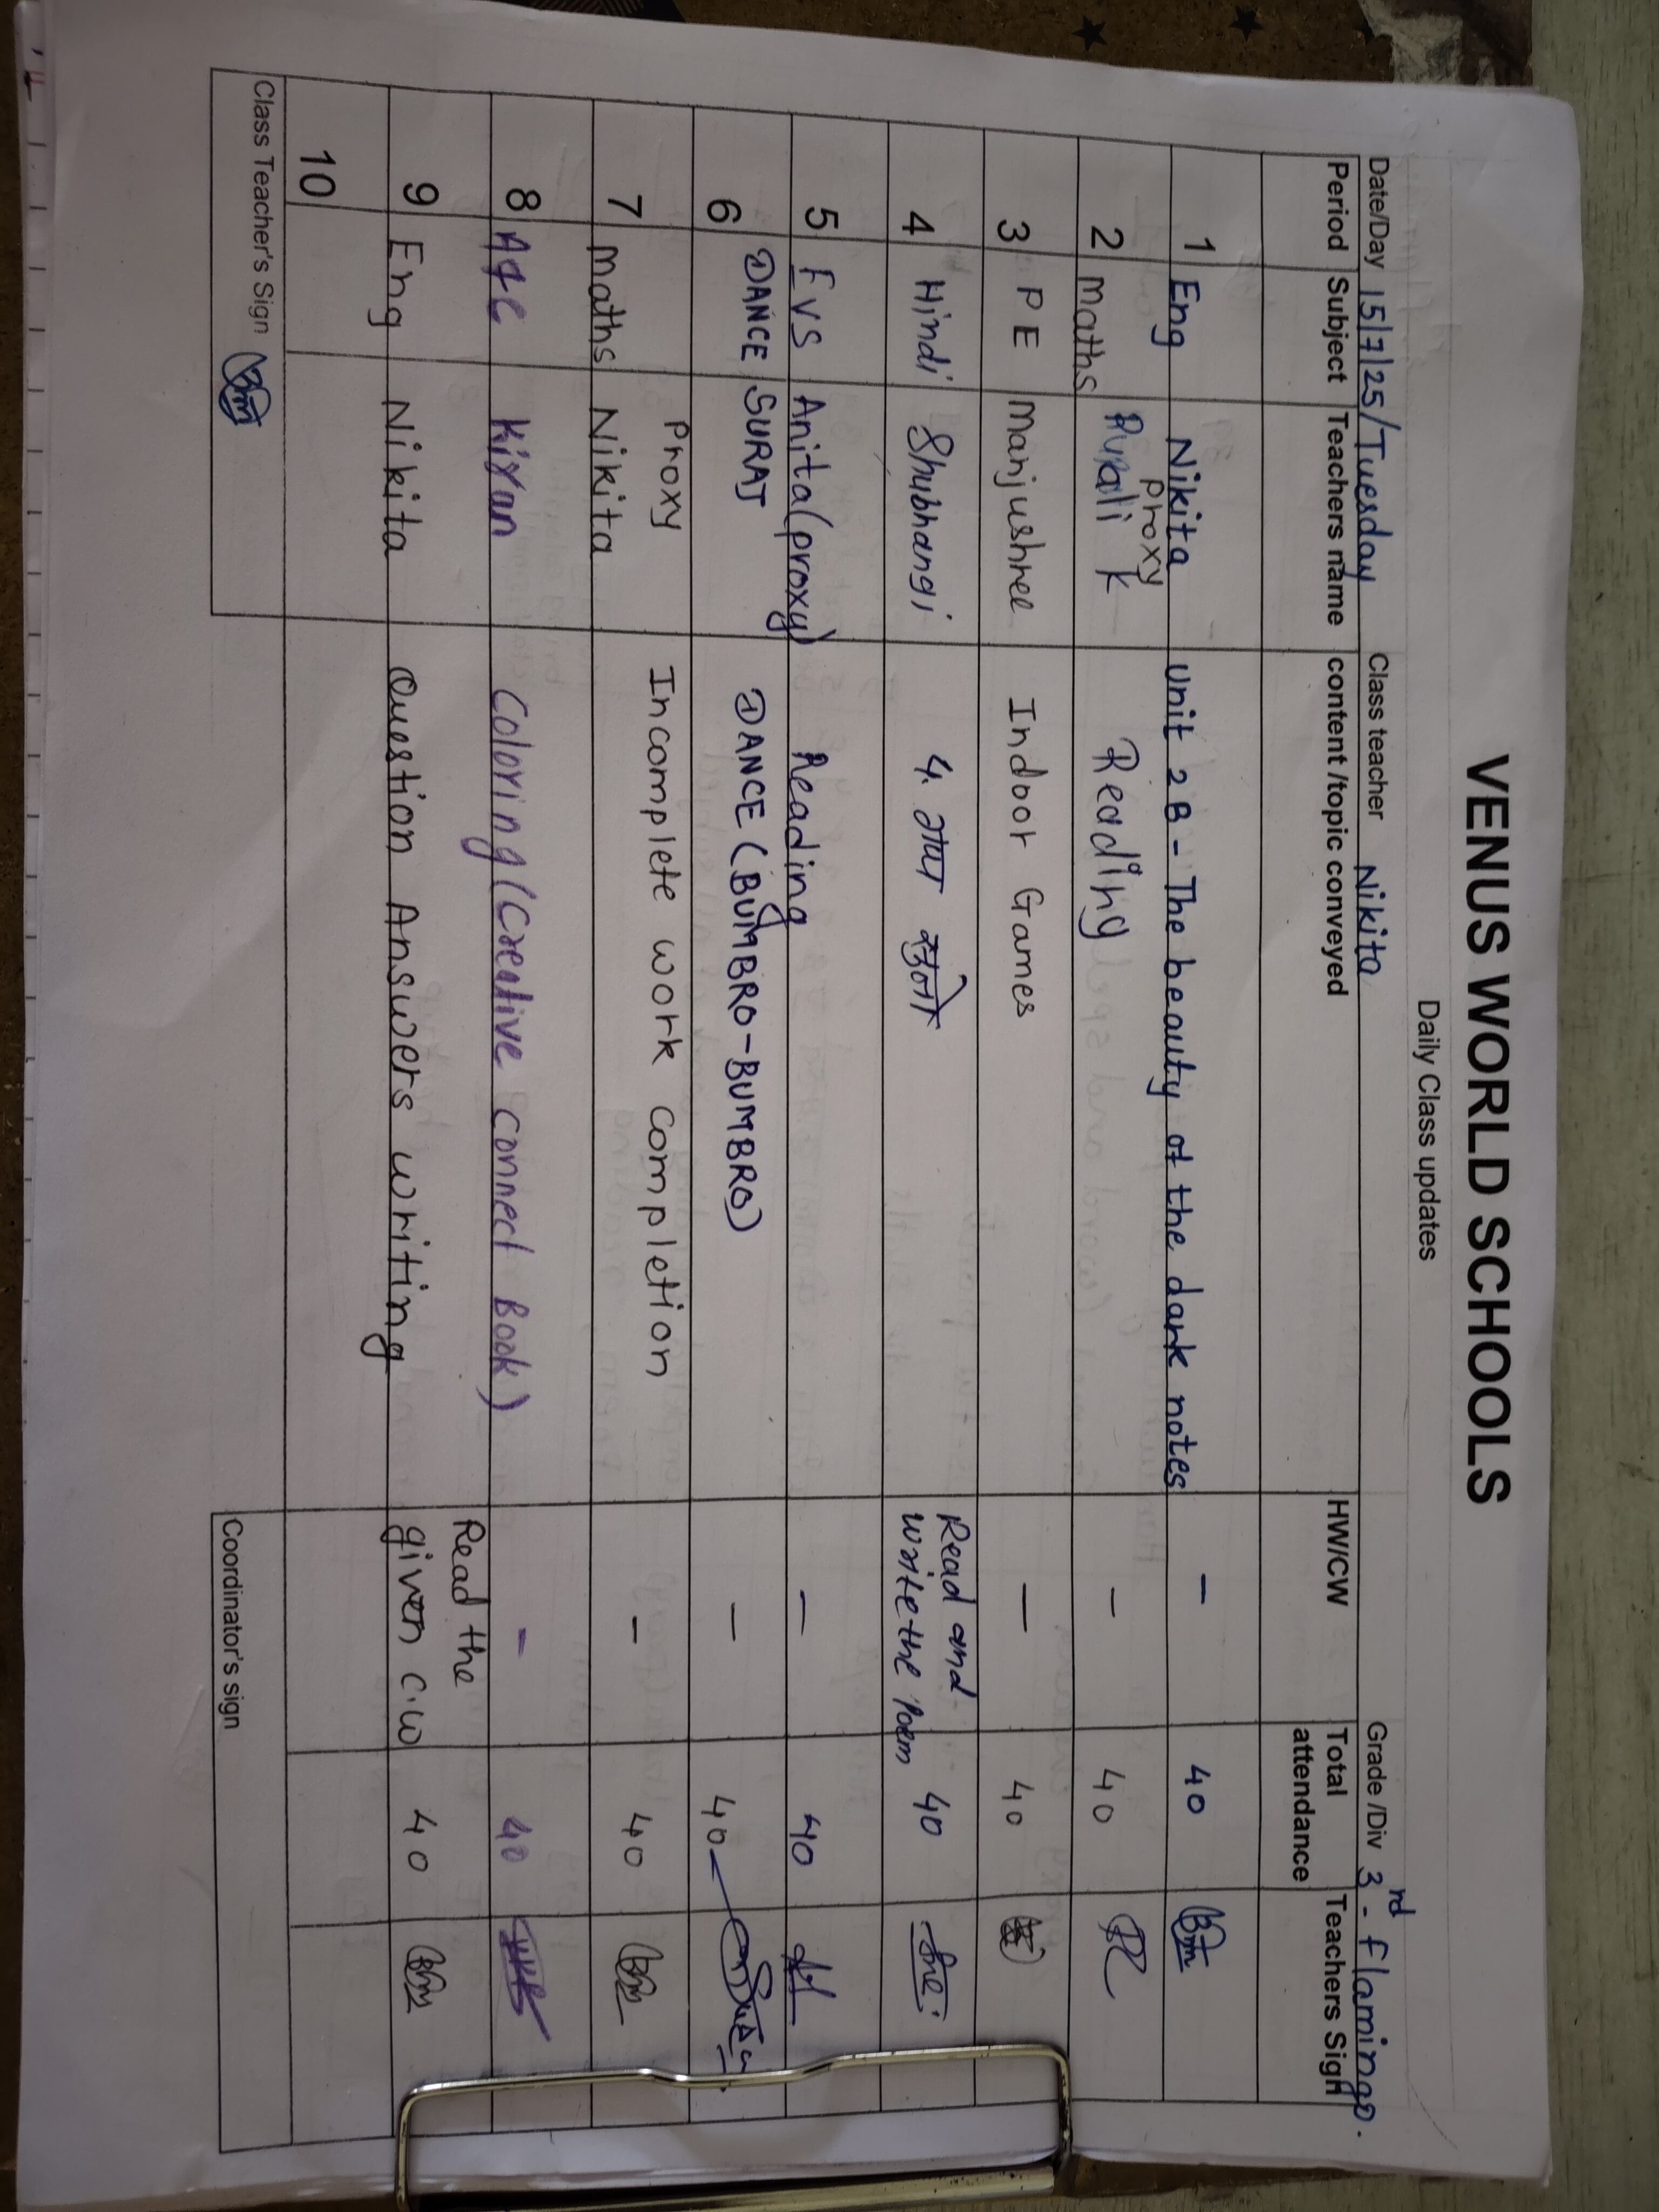 VENUS WORLD SCHOOLS
Daily Class updates
Date/Day 15/7/25/Tuesday Class teacher Nikita Grade /Div 3rd - Flamingo.
Period Subject Teachers name content /topic conveyed HW/CW Total attendance Teachers Sign
1 Eng Nikita Unit 2B - The beauty of the dark notes - 40
2 maths Rupali K proxy Reading - 40
3 PE Manjushree Indoor Games - 40
4 Hindi Shubhangi 4. Read and write the Poem 40
5 EVS Anita (proxy) Reading - 40
6 DANCE SURAJ DANCE (BUMBRO-BUMBRO) - 40
7 maths Proxy Nikita Incomplete work completion - 40
8 A&C Kiran Coloring (Creative connect Book) - 40
9 Eng Nikita Question Answers writing Read the given c.w 40
10
Class Teacher's Sign Coordinator's sign